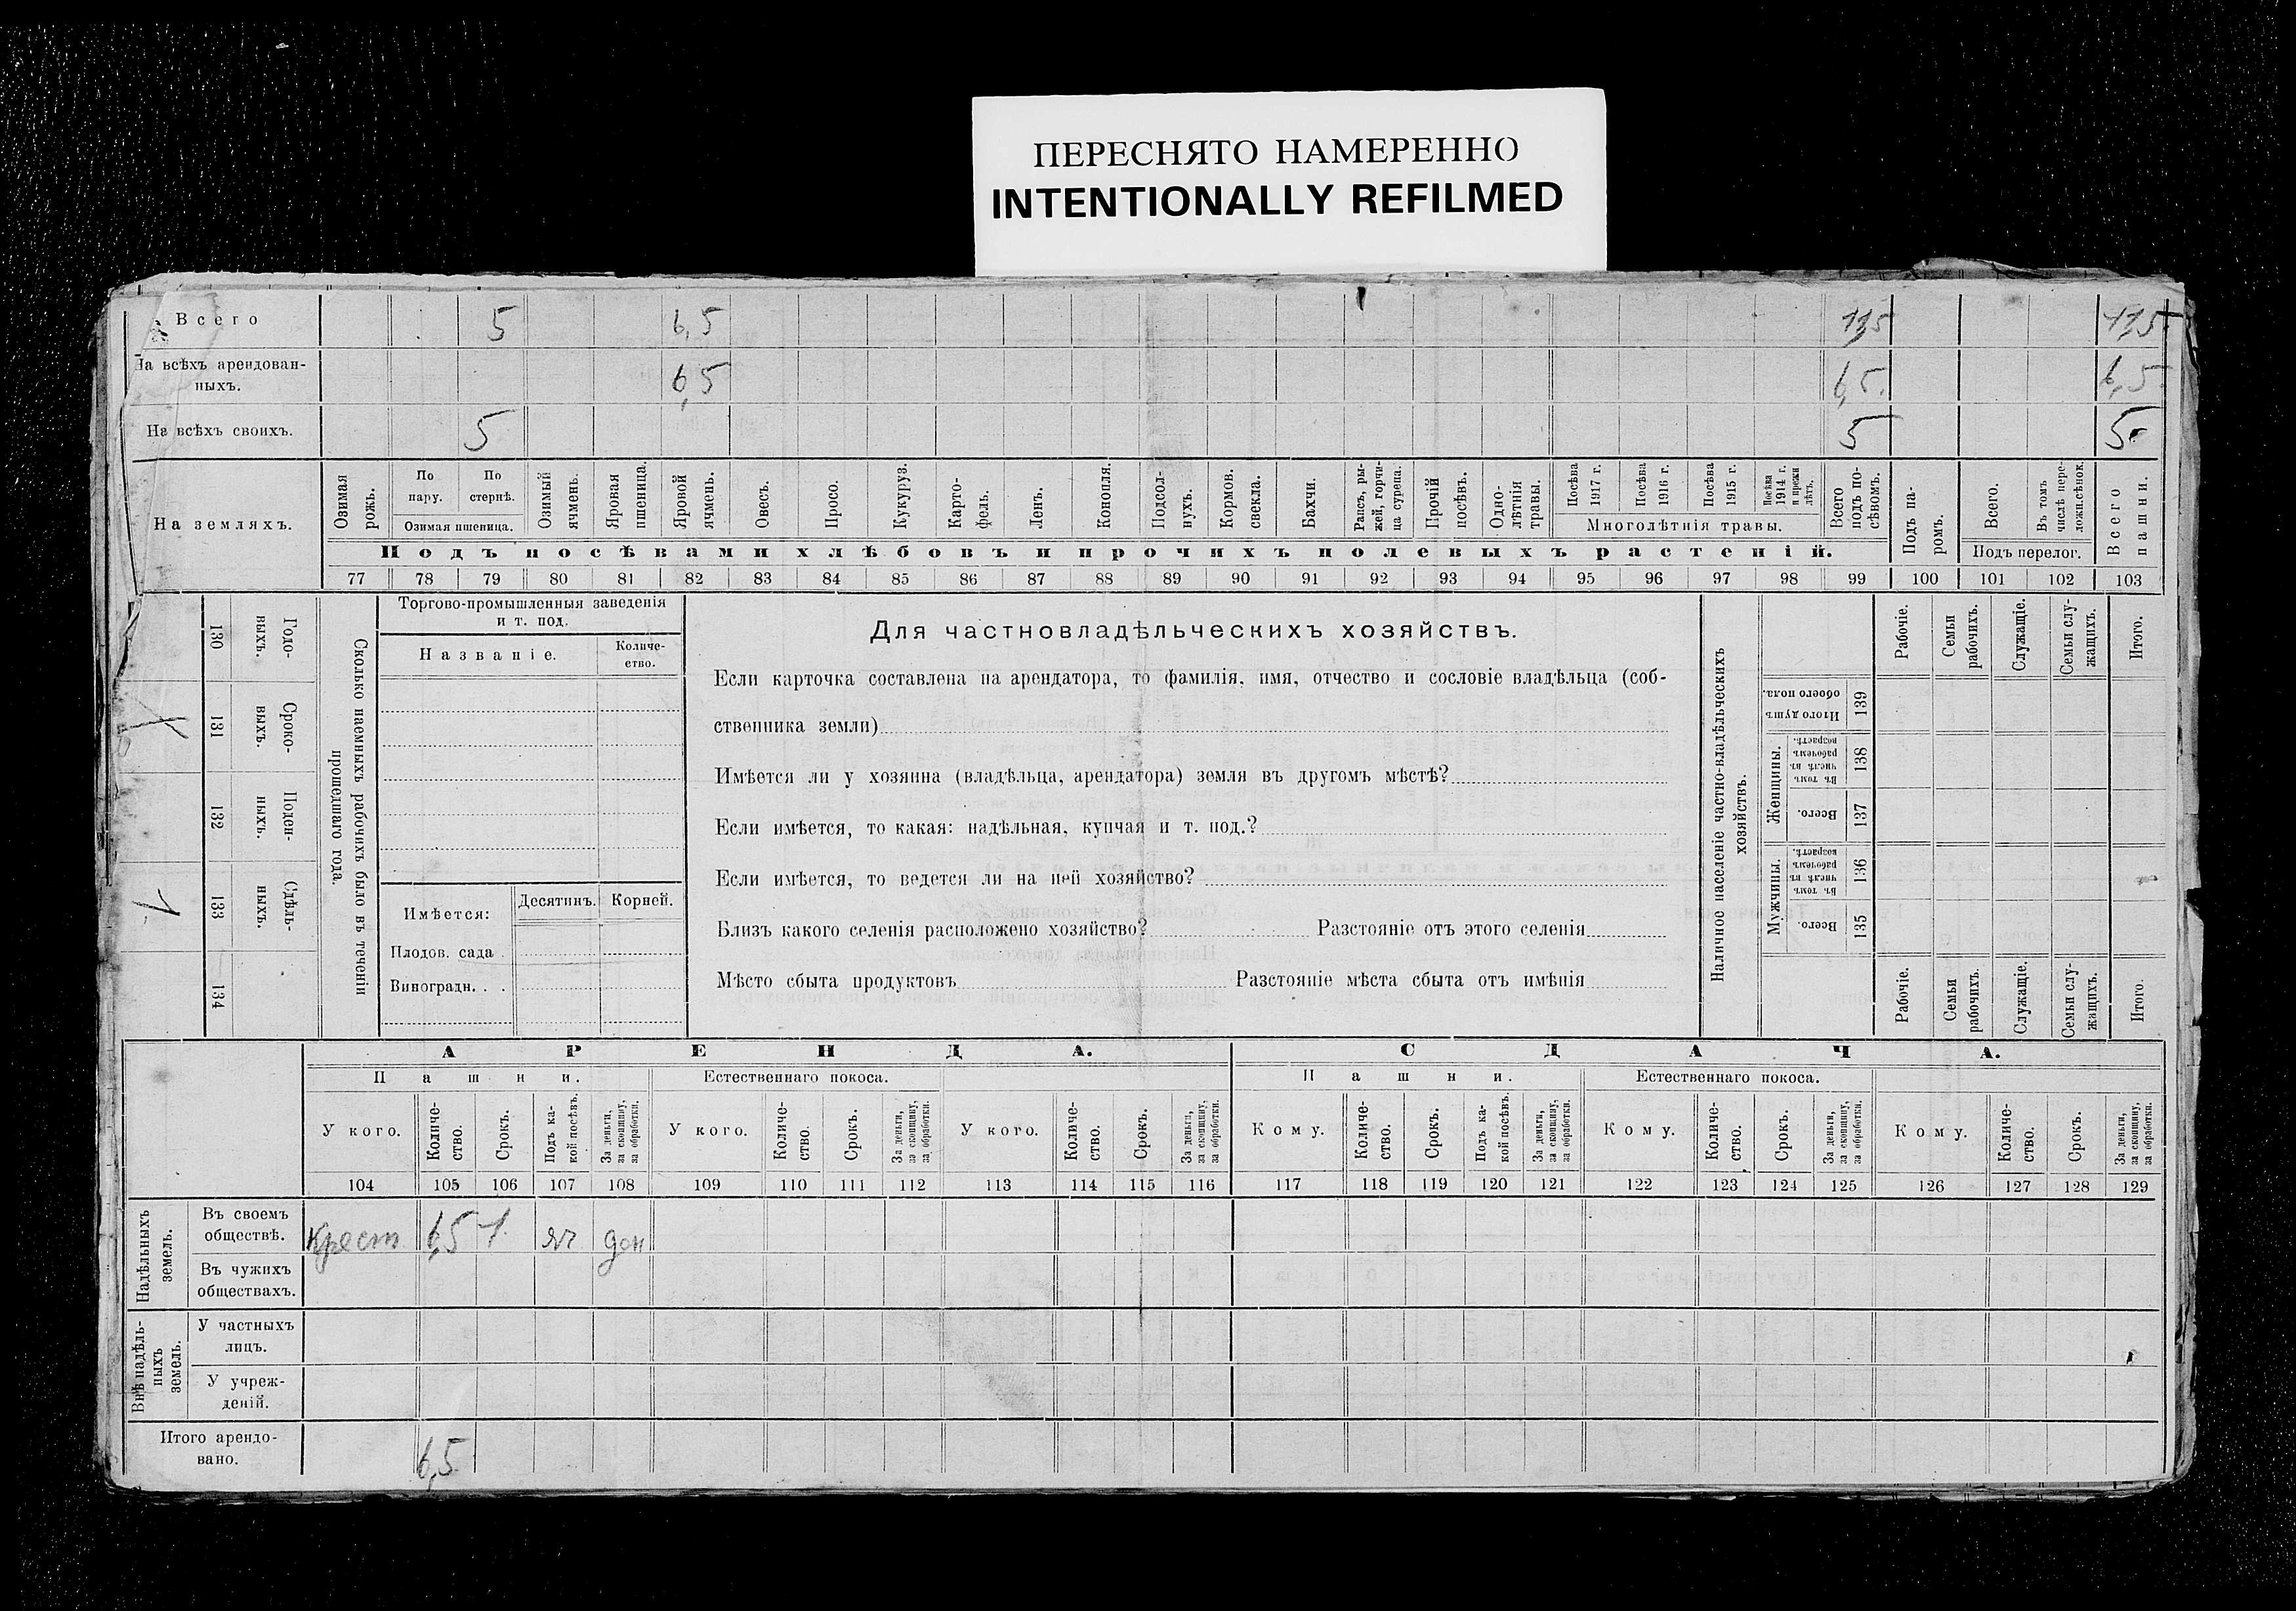 ПЕРЕСНЯТО НАМЕРЕННО
INTENTIONALLY REFILMED
Всего 5 6,5 11,5 11,5
На всѣхъ арендован-
ныхъ. 6,5 6,5 6,5
На всѣхъ своихъ. 5 5 5
На земляхъ.
Озимая рожь.
По пару.
По стернѣ.
Озимая пшеница.
Озимый ячмень.
Яровая пшеница.
Яровой ячмень.
Овесъ.
Просо.
Кукуруз.
Карто-
фель.
Ленъ.
Конопля.
Подсол-
нухъ.
Кормов.
свекла.
Бахчи.
Рапсъ, ры-
жей, горчи-
ца суреца.
Прочій
посѣвъ.
Одно-
лѣтнія
травы.
Посѣва 1917 г.
Посѣва 1916 г.
Посѣва 1915 г.
Посѣва 1914 г. и прежн лѣтъ.
Многолѣтнія травы.
Всего
подъ по-
сѣвомъ.
Подъ посѣвами хлѣбовъ и прочихъ полевыхъ растеній.
Подъ па-
ромъ.
Всего.
Въ томъ
числѣ пере-
ложн.сѣнок.
Подъ перелог.
Всего
пашни.
77 78 79 80 81 82 83 84 85 86 87 88 89 90 91 92 93 94 95 96 97 98 99 100 101 102 103
Сколько наемныхъ рабочихъ было въ теченіи
прошедшаго года.
Годо-
выхъ.
130
Сроко-
выхъ.
131
Поден-
ныхъ.
132
Сдѣль-
ныхъ.
133
134
Торгово-промышленныя заведенія
и т. под.
Названіе.
Количе-
ство.
Имѣется:
Десятинъ. Корней.
Плодов. сада
Виноградн. . .
Для частновладѣльческихъ хозяйствъ.
Если карточка составлена на арендатора, то фамилія, имя, отчество и сословіе владѣльца (соб-
ственника земли)
Имѣется ли у хозяина (владѣльца, арендатора) земля въ другомъ мѣстѣ?
Если имѣется, то какая: надѣльная, купчая и т. под.?
Если имѣется, то ведется ли на ней хозяйство?
Близъ какого селенія расположено хозяйство? Разстояніе отъ этого селенія
Мѣсто сбыта продуктовъ Разстояніе мѣста сбыта отъ имѣнія
Наличное населеніе частно-владѣльческихъ
хозяйствъ.
Итого душъ
обоего пола.
139
Женщины.
Въ томъ
числѣ въ
рабочемъ
возрастѣ.
138
Всего.
137
Мужчины.
Въ томъ
числѣ въ
рабочемъ
возрастѣ.
136
Всего.
135
Рабочіе.
Семьи
рабочихъ.
Служащіе.
Семьи слу-
жащихъ.
Итого.
Рабочіе.
Семьи
рабочихъ.
Служащіе.
Семьи слу-
жащихъ.
Итого.
АРЕНДА. СДАЧА.
Пашни. Естественнаго покоса. Пашни. Естественнаго покоса.
У кого.
Количе-
ство.
Срокъ.
Подъ ка-
кой посѣвъ.
За деньги,
за скопщину,
за обработки.
У кого.
Количе-
ство.
Срокъ.
За деньги,
за скопщину,
за обработки.
У кого.
Количе-
ство.
Срокъ.
За деньги,
за скопщину,
за обработки.
Кому.
Количе-
ство.
Срокъ.
Подъ ка-
кой посѣвъ.
За деньги,
за скопщину,
за обработки.
Кому.
Количе-
ство.
Срокъ.
За деньги,
за скопщину,
за обработки.
Кому.
Количе-
ство.
Срокъ.
За деньги,
за скопщину,
за обработки.
104 105 106 107 108 109 110 111 112 113 114 115 116 117 118 119 120 121 122 123 124 125 126 127 128 129
Надѣльныхъ
земель.
Въ своемъ
обществѣ. Крест 6,5 1 яч ден
Въ чужихъ
обществахъ.
Внѣ надѣль-
ныхъ
земель.
У частныхъ
лицъ.
У учреж-
деній.
Итого арендо-
вано. 6,5